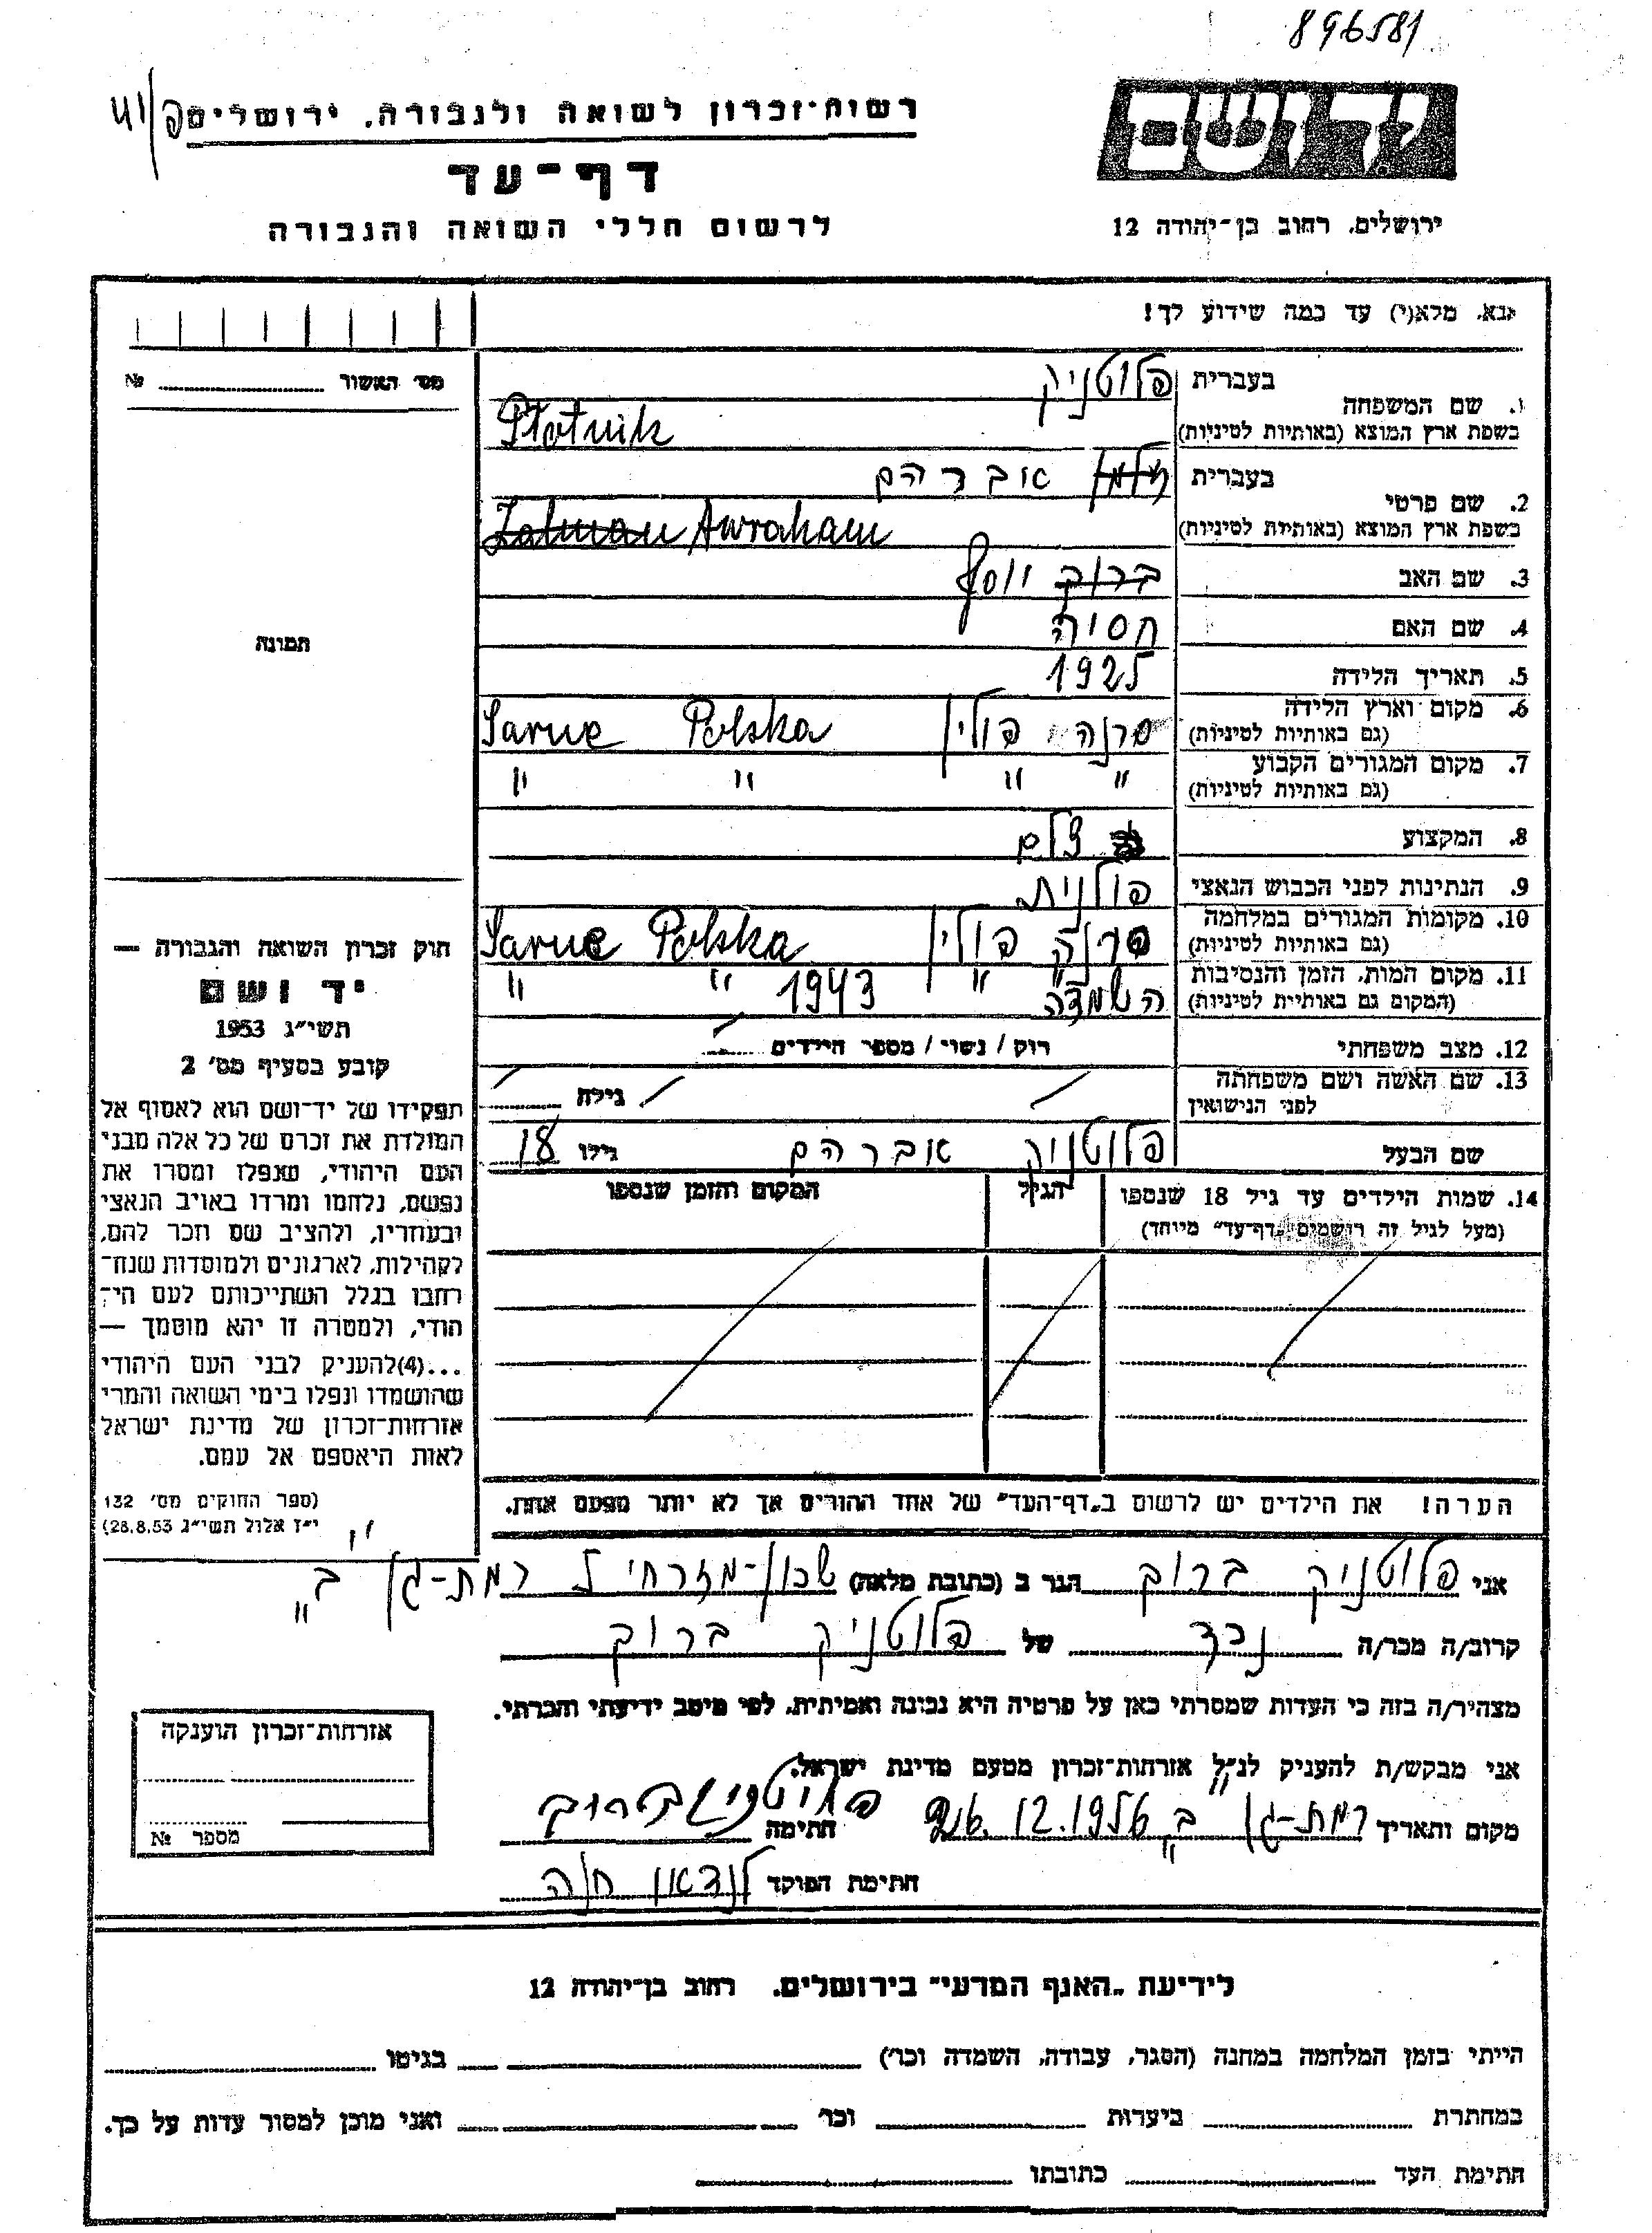 896581
רשות-זכרון לשואה ולגבורה, ירושלים
יד ושם
דף-עד
לרשום חללי השואה והגבורה
ירושלים, רחוב בן-יהודה 12
נא, מלא(י) עד כמה שידוע לך!
מס' האשור № 
1. שם המשפחה בעברית פלוטניק
בשפת ארץ המוצא (באותיות לטיניות) Płotnik
2. שם פרטי בעברית זלמן אברהם
בשפת ארץ המוצא (באותיות לטיניות) Zalman Awraham
3. שם האב ברוך יוסף
4. שם האם חסיה
תמונה
5. תאריך הלידה 1925
6. מקום וארץ הלידה (גם באותיות לטיניות) סרנה פולין Sarne Polska
7. מקום המגורים הקבוע (גם באותיות לטיניות) " " " "
8. המקצוע צלם
9. הנתינות לפני הכבוש הנאצי פולנית
10. מקומות המגורים במלחמה (גם באותיות לטיניות) סרנה פולין Sarne Polska
11. מקום המות, הזמן והנסיבות (המקום גם באותיות לטיניות) " " " "
השמדה 1943
12. מצב משפחתי רוק / נשוי / מספר הילדים
13. שם האשה ושם משפחתה לפני הנישואין גילה
שם הבעל פלוטניק אברהם גילו 18
14. שמות הילדים עד גיל 18 שנספו הגיל המקום והזמן שנספו
(מעל לגיל זה רושמים "דף-עד" מיוחד)
הערה! את הילדים יש לרשום ב"דף-העד" של אחד ההורים אך לא יותר מפעם אחת.
חוק זכרון השואה והגבורה —
יד ושם
תשי"ג 1953
קובע בסעיף מס' 2
תפקידו של יד-ושם הוא לאסוף אל
המולדת את זכרם של כל אלה מבני
העם היהודי, שנפלו ומסרו את
נפשם, נלחמו ומרדו באויב הנאצי
ובעוזריו, ולהציב שם וזכר להם,
לקהילות, לארגונים ולמוסדות שנח-
רבו בגלל השתייכותם לעם הי-
הודי, ולמטרה זו יהא מוסמך —
...(4)להעניק לבני העם היהודי
שהושמדו ונפלו בימי השואה והמרי
אזרחות-זכרון של מדינת ישראל
לאות היאספם אל עמם.
(ספר החוקים מס' 132
י"ז אלול תשי"ג 28.8.53)
אני פלוטניק ברוך הגר ב (כתובת מלאה) שכון-מזרחי ז רמת-גן ב"
קרוב/ה מכר/ה נכד של פלוטניק ברוך
מצהיר/ה בזה כי העדות שמסרתי כאן על פרטיה היא נכונה ואמיתית, לפי מיטב ידיעתי והכרתי.
אני מבקש/ת להעניק לנ"ל אזרחות-זכרון מטעם מדינת ישראל.
מקום ותאריך רמת-גן ב" 12.1956 חתימה פלוטניק ברוך
חתימת הפוקד לנדאו חיה
אזרחות-זכרון הוענקה
מספר №
לידיעת "האגף המדעי" בירושלים, רחוב בן-יהודה 12
הייתי בזמן המלחמה במחנה (הסגר, עבודה, השמדה וכר') בגיטו
במחתרת ביערות וכר' ואני מוכן למסור עדות על כך.
חתימת העד כתובתו